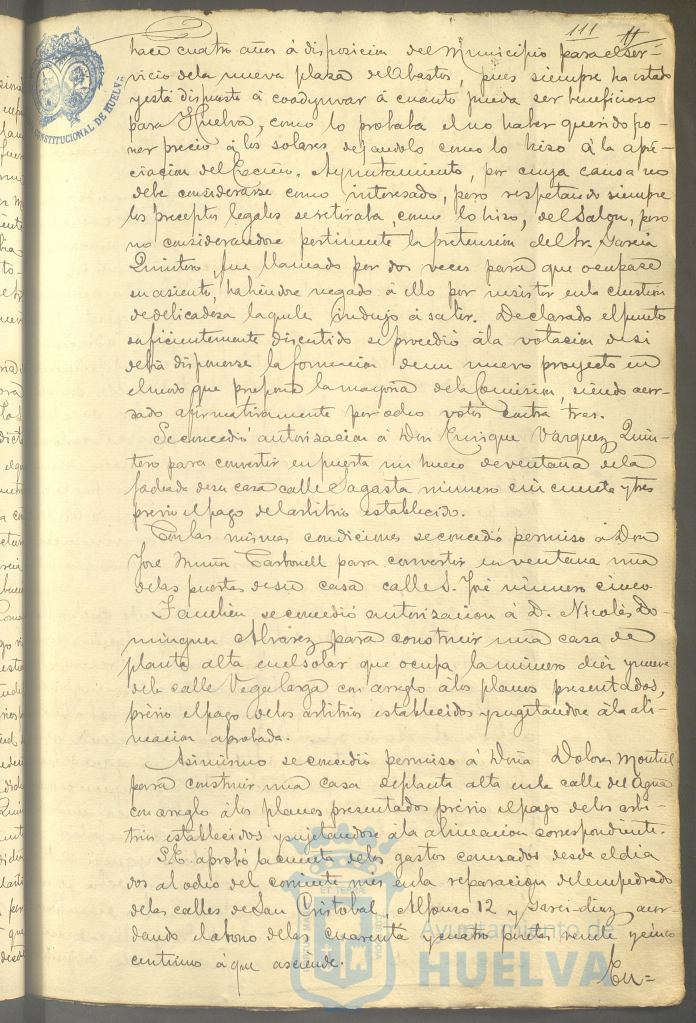 111
CONSTITUCIONAL DE HUELVA
hace cuatro años á disposicion del Municipio para el ser-
vicio de la nueva plaza de Abastos, pues siempre ha estado
y está dispuesto á coadyuvar á cuanto pueda ser beneficioso
para Huelva, como lo probaba el no haber querido po-
ner precio á los solares dejandolo como lo hizo á la apre-
ciacion del Excmo. Ayuntamiento, por cuya causa no
debe considerarse como interesado, pero respetando siempre
los preceptos legales se retiraba, como lo hizo, del Salon, pero
no considerandose pertinente la pretension del Sr. Garcia
Quintero, fue llamado por dos veces para que ocupase
su asiento, habiendose negado á ello por insistir en la cuestion
de delicadeza la que le indujo á salir. Declarado el punto
suficientemente discutido se procedió á la votacion de si
debia disponerse la formacion de un nuevo proyecto en
el modo que propone la mayoria de la Comision, siendo acor-
dado afirmativamente por ocho votos contra tres.
Se concedió autorizacion á Don Enrique Vazquez Quin-
tero para convertir en puerta un hueco de ventana de la
fachada de su casa calle Sagasta número cincuenta y tres
prévio el pago del arbitrio establecido.
Con las mismas condiciones se concedió permiso á Don
José Muñiz Carbonell para convertir en ventana una
de las puertas de su casa calle S. José número cinco.
Tambien se concedió autorizacion á D. Nicolás Do-
minguez Alvarez para construir una casa de
planta alta en el solar que ocupa la número diez y nueve
de la calle Vega larga con arreglo á los planos presentados,
prévio el pago de los arbitrios establecidos y sugetandose á la ali-
neacion aprobada.
Asimismo se concedió permiso á Doña Dolores Montiel
para construir una casa de planta alta en la calle del Agua
con arreglo á los planos presentados prévio el pago de los arbi-
trios establecidos y sugetandose á la alineacion correspondiente.
S.E. aprobó la cuenta de los gastos causados desde el dia
dos al ocho del corriente mes en la reparacion del empedrado
de las calles de San Cristobal, Alfonso 12 y Garci-diaz acor-
dando el abono de las cuarenta y cuatro pesetas veinte y cinco
centimos á que asciende.
En=
Ayuntamiento de
HUELVA